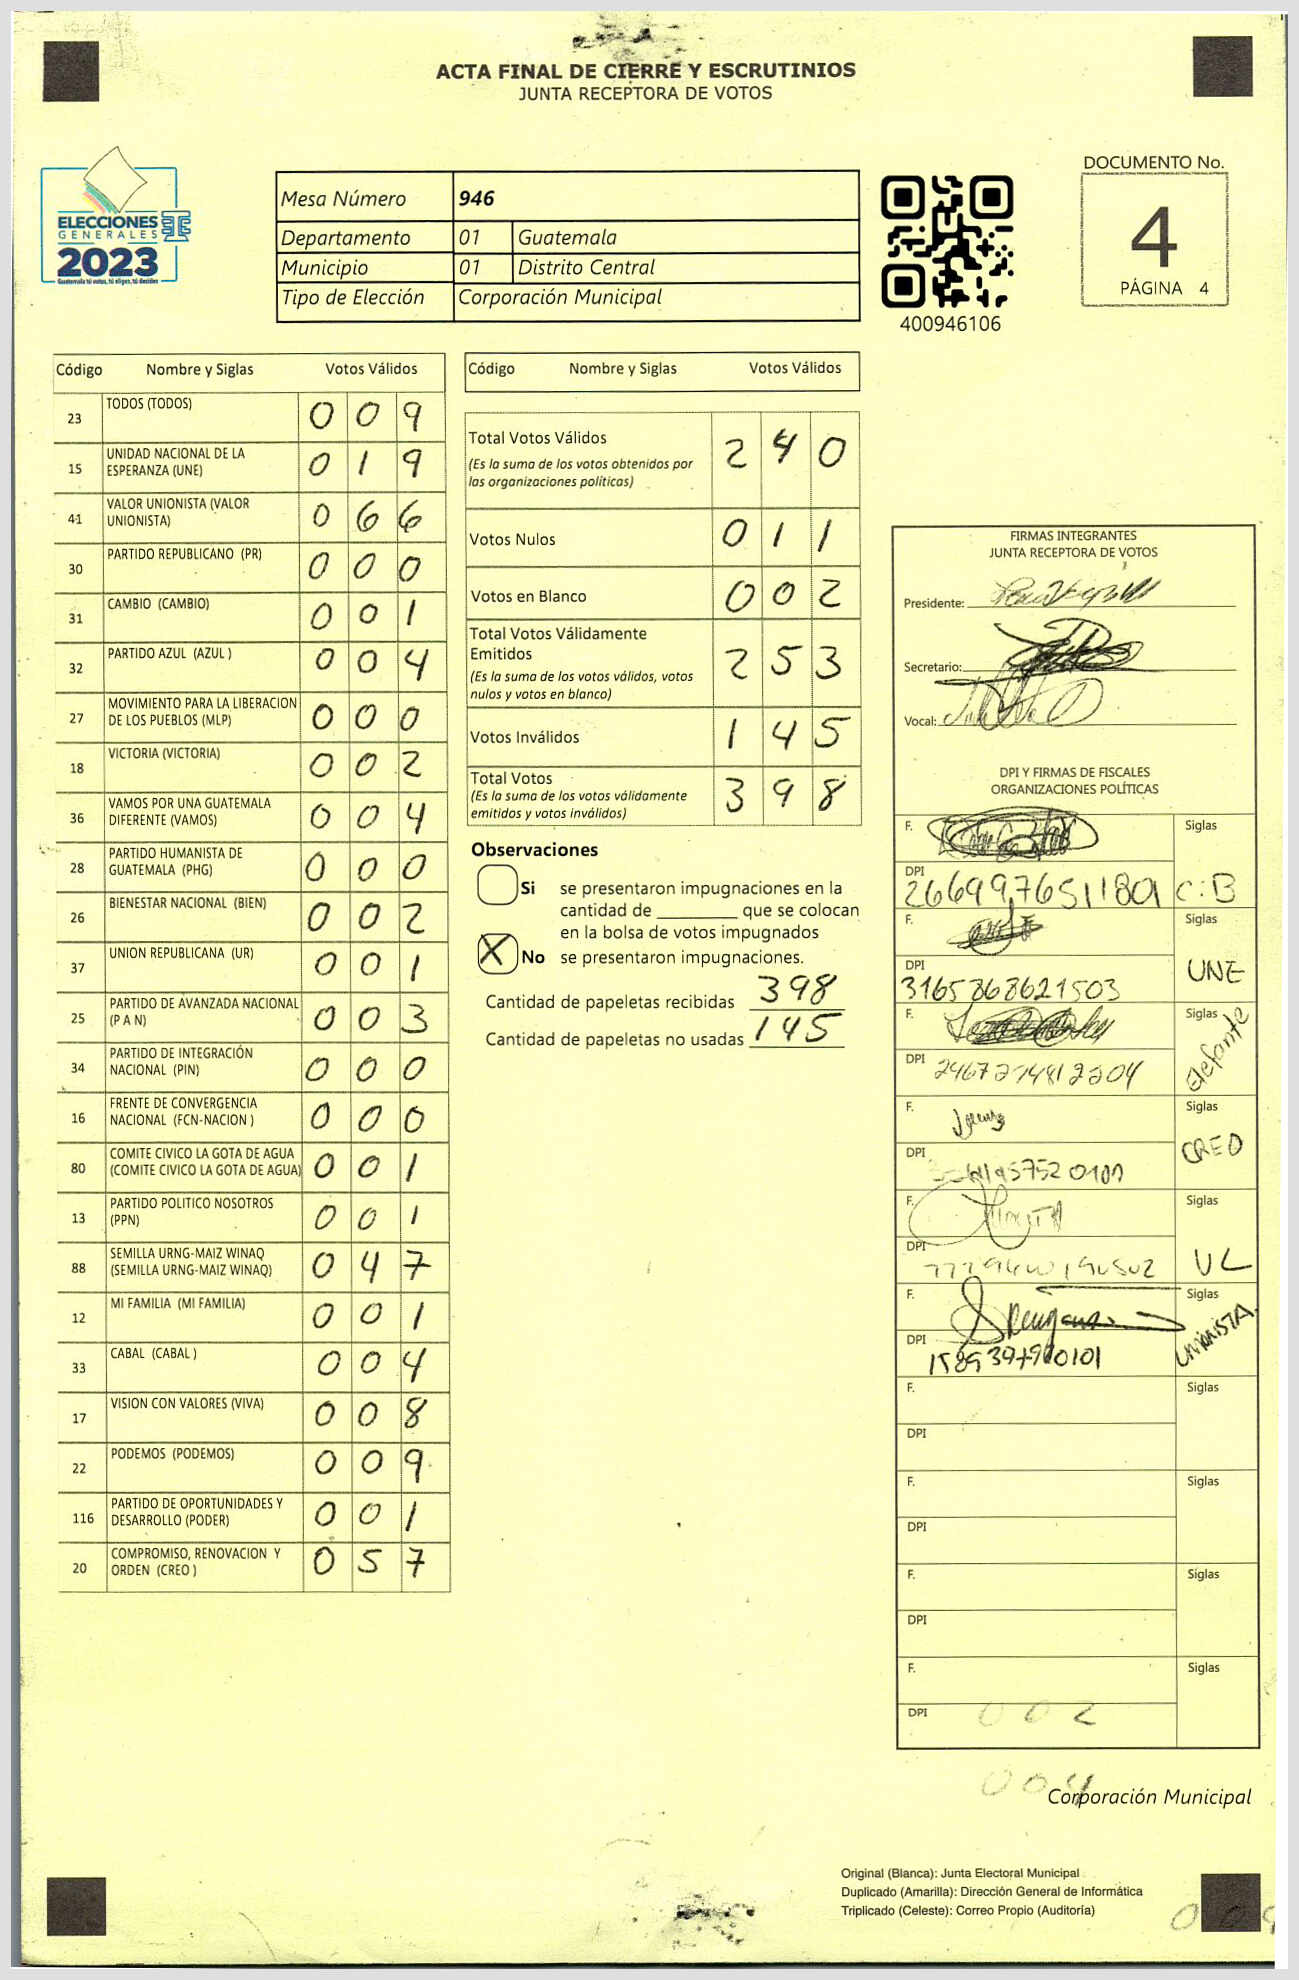 ACTA FINAL DE CIERRE Y ESCRUTINIOS
JUNTA RECEPTORA DE VOTOS
ELECCIONES
GENERALES
2023
Guatemala tú votas, tú eliges, tú decides
Mesa Número 946
Departamento 01 Guatemala
Municipio 01 Distrito Central
Tipo de Elección Corporación Municipal
400946106
DOCUMENTO No.
4
PÁGINA 4
Código Nombre y Siglas Votos Válidos
23 TODOS (TODOS) 0 0 9
15 UNIDAD NACIONAL DE LA
ESPERANZA (UNE) 0 1 9
41 VALOR UNIONISTA (VALOR
UNIONISTA) 0 6 6
30 PARTIDO REPUBLICANO (PR) 0 0 0
31 CAMBIO (CAMBIO) 0 0 1
32 PARTIDO AZUL (AZUL ) 0 0 4
27 MOVIMIENTO PARA LA LIBERACION
DE LOS PUEBLOS (MLP) 0 0 0
18 VICTORIA (VICTORIA) 0 0 2
36 VAMOS POR UNA GUATEMALA
DIFERENTE (VAMOS) 0 0 4
28 PARTIDO HUMANISTA DE
GUATEMALA (PHG) 0 0 0
26 BIENESTAR NACIONAL (BIEN) 0 0 2
37 UNION REPUBLICANA (UR) 0 0 1
25 PARTIDO DE AVANZADA NACIONAL
(P A N) 0 0 3
34 PARTIDO DE INTEGRACIÓN
NACIONAL (PIN) 0 0 0
16 FRENTE DE CONVERGENCIA
NACIONAL (FCN-NACION ) 0 0 0
80 COMITE CIVICO LA GOTA DE AGUA
(COMITE CIVICO LA GOTA DE AGUA) 0 0 1
13 PARTIDO POLITICO NOSOTROS
(PPN) 0 0 1
88 SEMILLA URNG-MAIZ WINAQ
(SEMILLA URNG-MAIZ WINAQ) 0 4 7
12 MI FAMILIA (MI FAMILIA) 0 0 1
33 CABAL (CABAL ) 0 0 4
17 VISION CON VALORES (VIVA) 0 0 8
22 PODEMOS (PODEMOS) 0 0 9
116 PARTIDO DE OPORTUNIDADES Y
DESARROLLO (PODER) 0 0 1
20 COMPROMISO, RENOVACION Y
ORDEN (CREO ) 0 5 7
Código Nombre y Siglas Votos Válidos
Total Votos Válidos 2 4 0
(Es la suma de los votos obtenidos por
las organizaciones políticas)
Votos Nulos 0 1 1
Votos en Blanco 0 0 2
Total Votos Válidamente
Emitidos 2 5 3
(Es la suma de los votos válidos, votos
nulos y votos en blanco)
Votos Inválidos 1 4 5
Total Votos 3 9 8
(Es la suma de los votos válidamente
emitidos y votos inválidos)
Observaciones
Si se presentaron impugnaciones en la
cantidad de ________ que se colocan
en la bolsa de votos impugnados
X No se presentaron impugnaciones.
Cantidad de papeletas recibidas 398
Cantidad de papeletas no usadas 145
FIRMAS INTEGRANTES
JUNTA RECEPTORA DE VOTOS
Presidente:
Secretario:
Vocal:
DPI Y FIRMAS DE FISCALES
ORGANIZACIONES POLÍTICAS
F. Siglas
DPI 2669976511801 C:B
F. Siglas
DPI 3165868621503 UNE
F. Siglas
DPI Elefante
F. Siglas
DPI CREO
F. Siglas
DPI UL
F. Siglas
DPI UNIONISTA
F. Siglas
DPI
F. Siglas
DPI
F. Siglas
DPI
F. Siglas
DPI 0 0 2
0 0 4
Corporación Municipal
Original (Blanca): Junta Electoral Municipal
Duplicado (Amarilla): Dirección General de Informática
Triplicado (Celeste): Correo Propio (Auditoría)
0 0 9